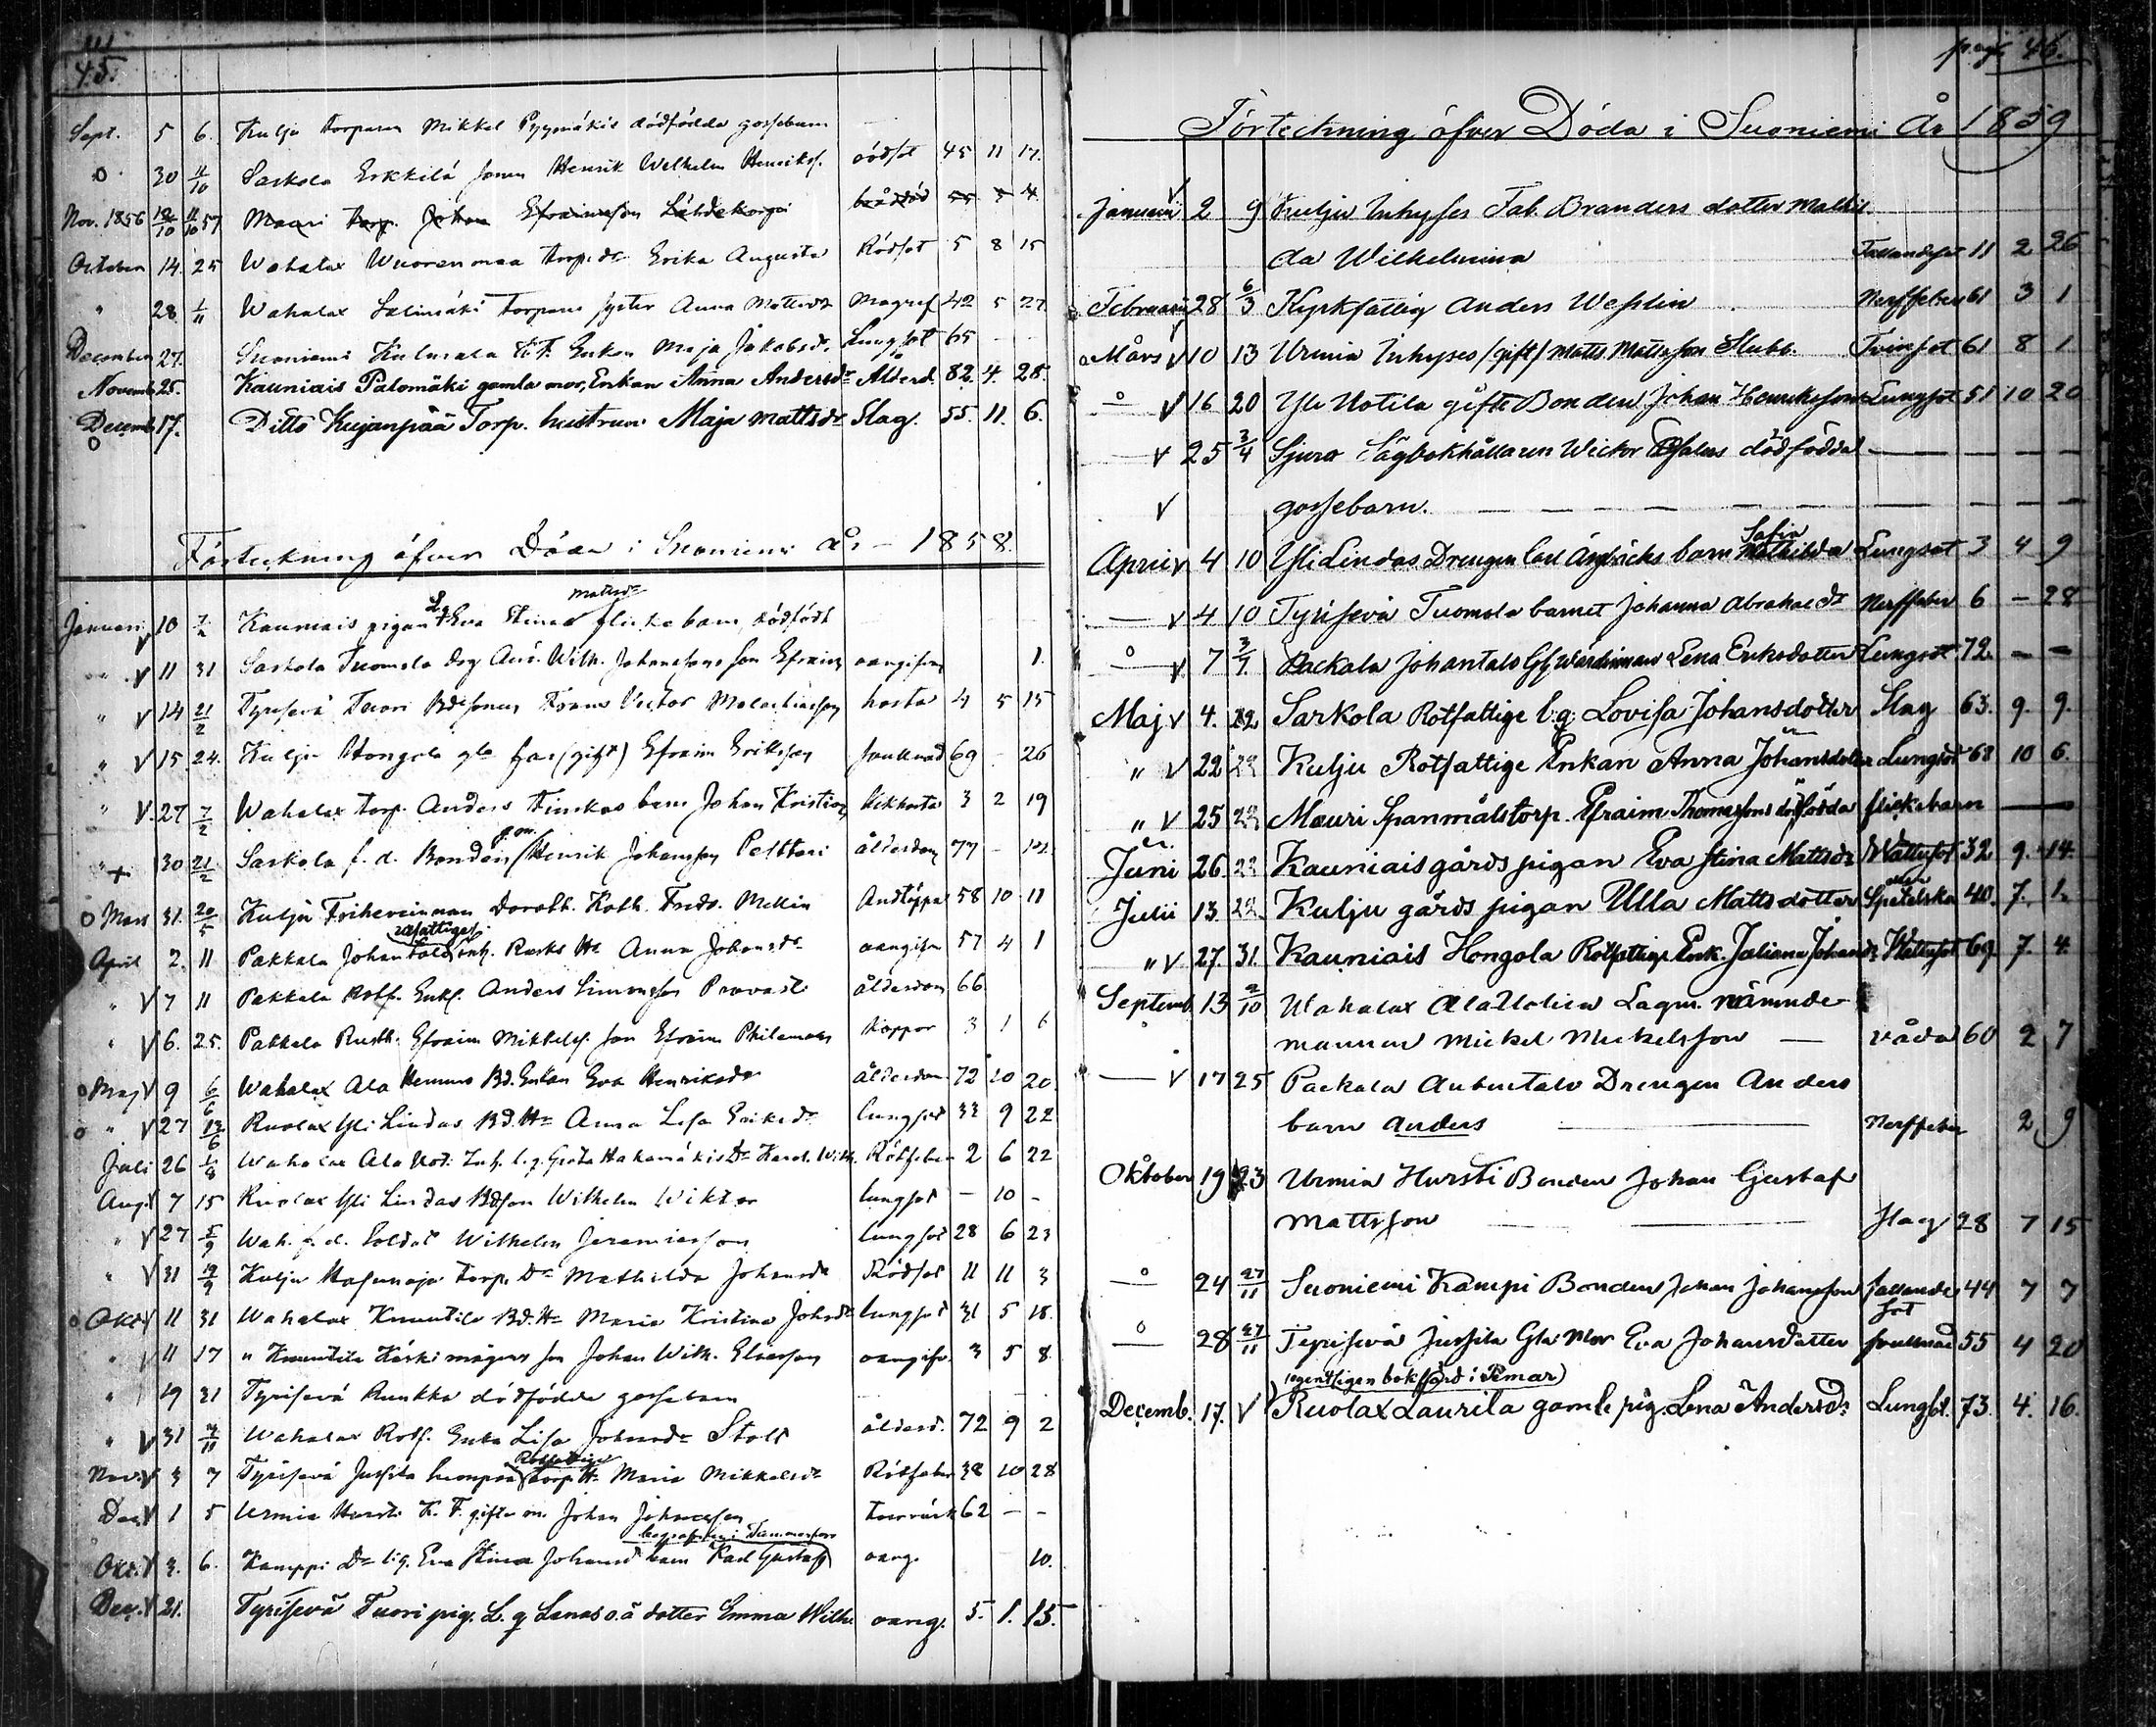 45.
Sept. 5 6. Kulju torparen Mikkel Pyymäkis dödfödda gossebarn
D 30 11/10 Sarkola Erkkilä sonen Henrik Wilhelm Henriks. rödsot 45 11 17.
Nov. 1856 12/10 11/10 57 Mauri torp. Johan Efraimsson Lähdekorpi bråddöd 55 3 4
October 14. 25 Wahalax Wuorenmaa torp. dr Erika Augusta Rödsot 5 8 15
" 28 1/11 Wahalax Salimäki torpare syster Anna Mattsdr Magref 42 5 27
December 27. Suoniemi Kulmala Enkan Maja Jakobsdr Lungsot 65 - -
Novemb. 25. Kauniais Palomäki gamla mor, Enkan Anna Andersdr Ålderd. 82. 4. 28.
Decemb. 17. Ditto Kujanpää Torp. hustrun Maja Mattsdr Slag. 55. 11. 6.
Förteckning öfver Döda i Suoniemi År - 1858.
Januari 10 7/2 Kauniais pigan Eva Stinas Mattsdr flickebarn, dödfödt
" v 11 31 Sarkola Tuomola drg And. Wilh. Johanssons son Efraim oangifven 1.
" v 14 21/2 Tyrisevä Tuori Bdesonen Frans Victor Malachiasson hosta 4 5 15
" v 15. 24. Kulju Hongola gla far (gift) Efraim Eriksson 69 - 26
" v. 27 7/2 Wahalax torp. Anders Finskas barn Johan Kristian Kikhosta 3 2 19
" + 30 21/2 Sarkola f. d. Bonden Henrik Johansson Pelttari ålderdom 77 -
o Mars 31. 20/5 Kulju Friherrinnan Doroth. Kath. Fredr. Mellin Andtäppa 58 10 11
April 2. 11 Pakkala Johan rotfattiges Anna Johansdr oangifven 57 4 1
" v 7 11 Pakkala Rotf. Enkl. Anders Simonsson Pravast ålderdom 66
" v 6. 25. Pakkala Rusth. Efraim Mikkelss. son Efraim Philemon Koppor 3 1 6
o Maj v 9 6/6 Wahalax Ala Hemmo Bd. Enkan Eva Henriksdr ålderdom 72 10 20.
o " v 27 13/6 Ruolax Yli Lindas Bd. Hu Anna Lisa Eriksdr lungsot 33 9 22
Juli 26 1/8 Wahalax Ala Uot. Inh. l. q. Greta Hakamäkis Dr Karol. Wilh. Rötfeber 2 6 22
Aug. v 7 15 Ruolax Yli Lindas Bdson Wilhelm Wiktor lungsot - 10 -
" v 27 5/9 Wah. f. d. Soldat Wilhelm Jeremiasson lungsot 28 6 23
" v 31 12/9 Kulju torp. Dr Mathilda Johansdr Rödsot 11 11 3
o Okt v 11 31 Wahalax Knuutila Bd. Hu Maria Kristina Johsdr lungsot 31 5 18.
" v 11 17 " Knuutila Käski mågens son Johan Wilh. Eliasson oangifv. 3 5 8
" 19 31 Tyrisevä Runkka dödfödde gossebarn
" v 31 7/11 Wahalax Rotf. Enka Lisa Johansdr Stolt ålderd. 72 9 2
Nov. v 3 7 Tyrisevä Jussila Rotfattige torp. Hu Maria Mikkelsdr Rötfeber 38 10 28
Dec. v 1 5 Urmia Hursti K. F. gifte m. Johan Johansson 62 - -
Okt. v 3. 6. Kamppi Dr l. q. Eva Stina Johansd. barn Karl Gustaf begrafven i Tammerfors oang. 10.
Dec. v 21. Tyrisevä Tuori pig. L. q Lenas o. ä dotter Emma Wilh. oang. 5. 1. 15.
pag. 46.
Förteckning öfver Döda i Suoniemi År 1859
Januari 2 9 Kulju Inhyses Fab. Branders dotter Mathil-
da Wilhelmina Fallandesot 11 2 26
Februari 28 6/3 Kyrkfattig Anders Wesslin Nerffeber 61 3 1
Mars v 10 13 Urmia Inhyses (gift) Matts Mattsson Stubb. Tvinsot 61 8 1
v 16 20 Yli Uotila gifte Bonden Johan Henriksson Lungsot 51 10 20
v 25 3/4 Sjuro Sågbokhållaren Wictor dödfödda
v gossebarn.
April v 4 10 Yli Lindas Drengen Carl barn Sofia Mathilda Lungsot 3 4 9
v 4 10 Tyrisevä Tuomola barnet Johanna Abrahadr Nerffeber 6 - 28
v 7 3/7 Packala Johantalo Gl. Wärdinnan Lena Eriksdotter Lungsot 72 - -
Maj v 4. 22 Sarkola Rotfattige l. q. Lovisa Johansdotter Slag 63. 9. 9.
" v 22 29 Kulju Rotfattige Enkan Anna Johansdotter Lungsot 68 10 6.
" v 25 29 Mauri Spanmålstorp. Efraim Thomassons dödfödda flickebarn
Juni 26 29 Kauniais gårds pigan Eva Stina Mattsdr Wattusot 32 9. 14.
Julii 13. 29. Kulju gårds pigan Ulla Mattsdotter Spetelska 40. 7. 1.
" v 27. 31. Kauniais Hongola Rotfattige Enk. Juliana Johansdr Wattusot 69. 7. 4.
Septemb. 13 2/10 Wahalax Ala Uotila Lagm. nämnde-
mannen Mickel Mickelsson våda 60 2 7
v 17 25 Packala Anbuntalo Drengen Anders
barn Anders Nerffeber 2 9
Oktober 19 23 Urmia Hursti Bonden Johan Gustaf
Mattsson slag 28 7 15
24 27/11 Suoniemi Kämpi Bonden Johan Johansson fallande sot 44 7 7
28 27/11 Tyrisevä Jussila Gla Mor Eva Johansdotter 55 4 20
(egentligen bokförd i Pemar)
Decemb. 17. v Ruolax Laurila gamle pig. Lena Andersdr Lungst. 73. 4. 16.